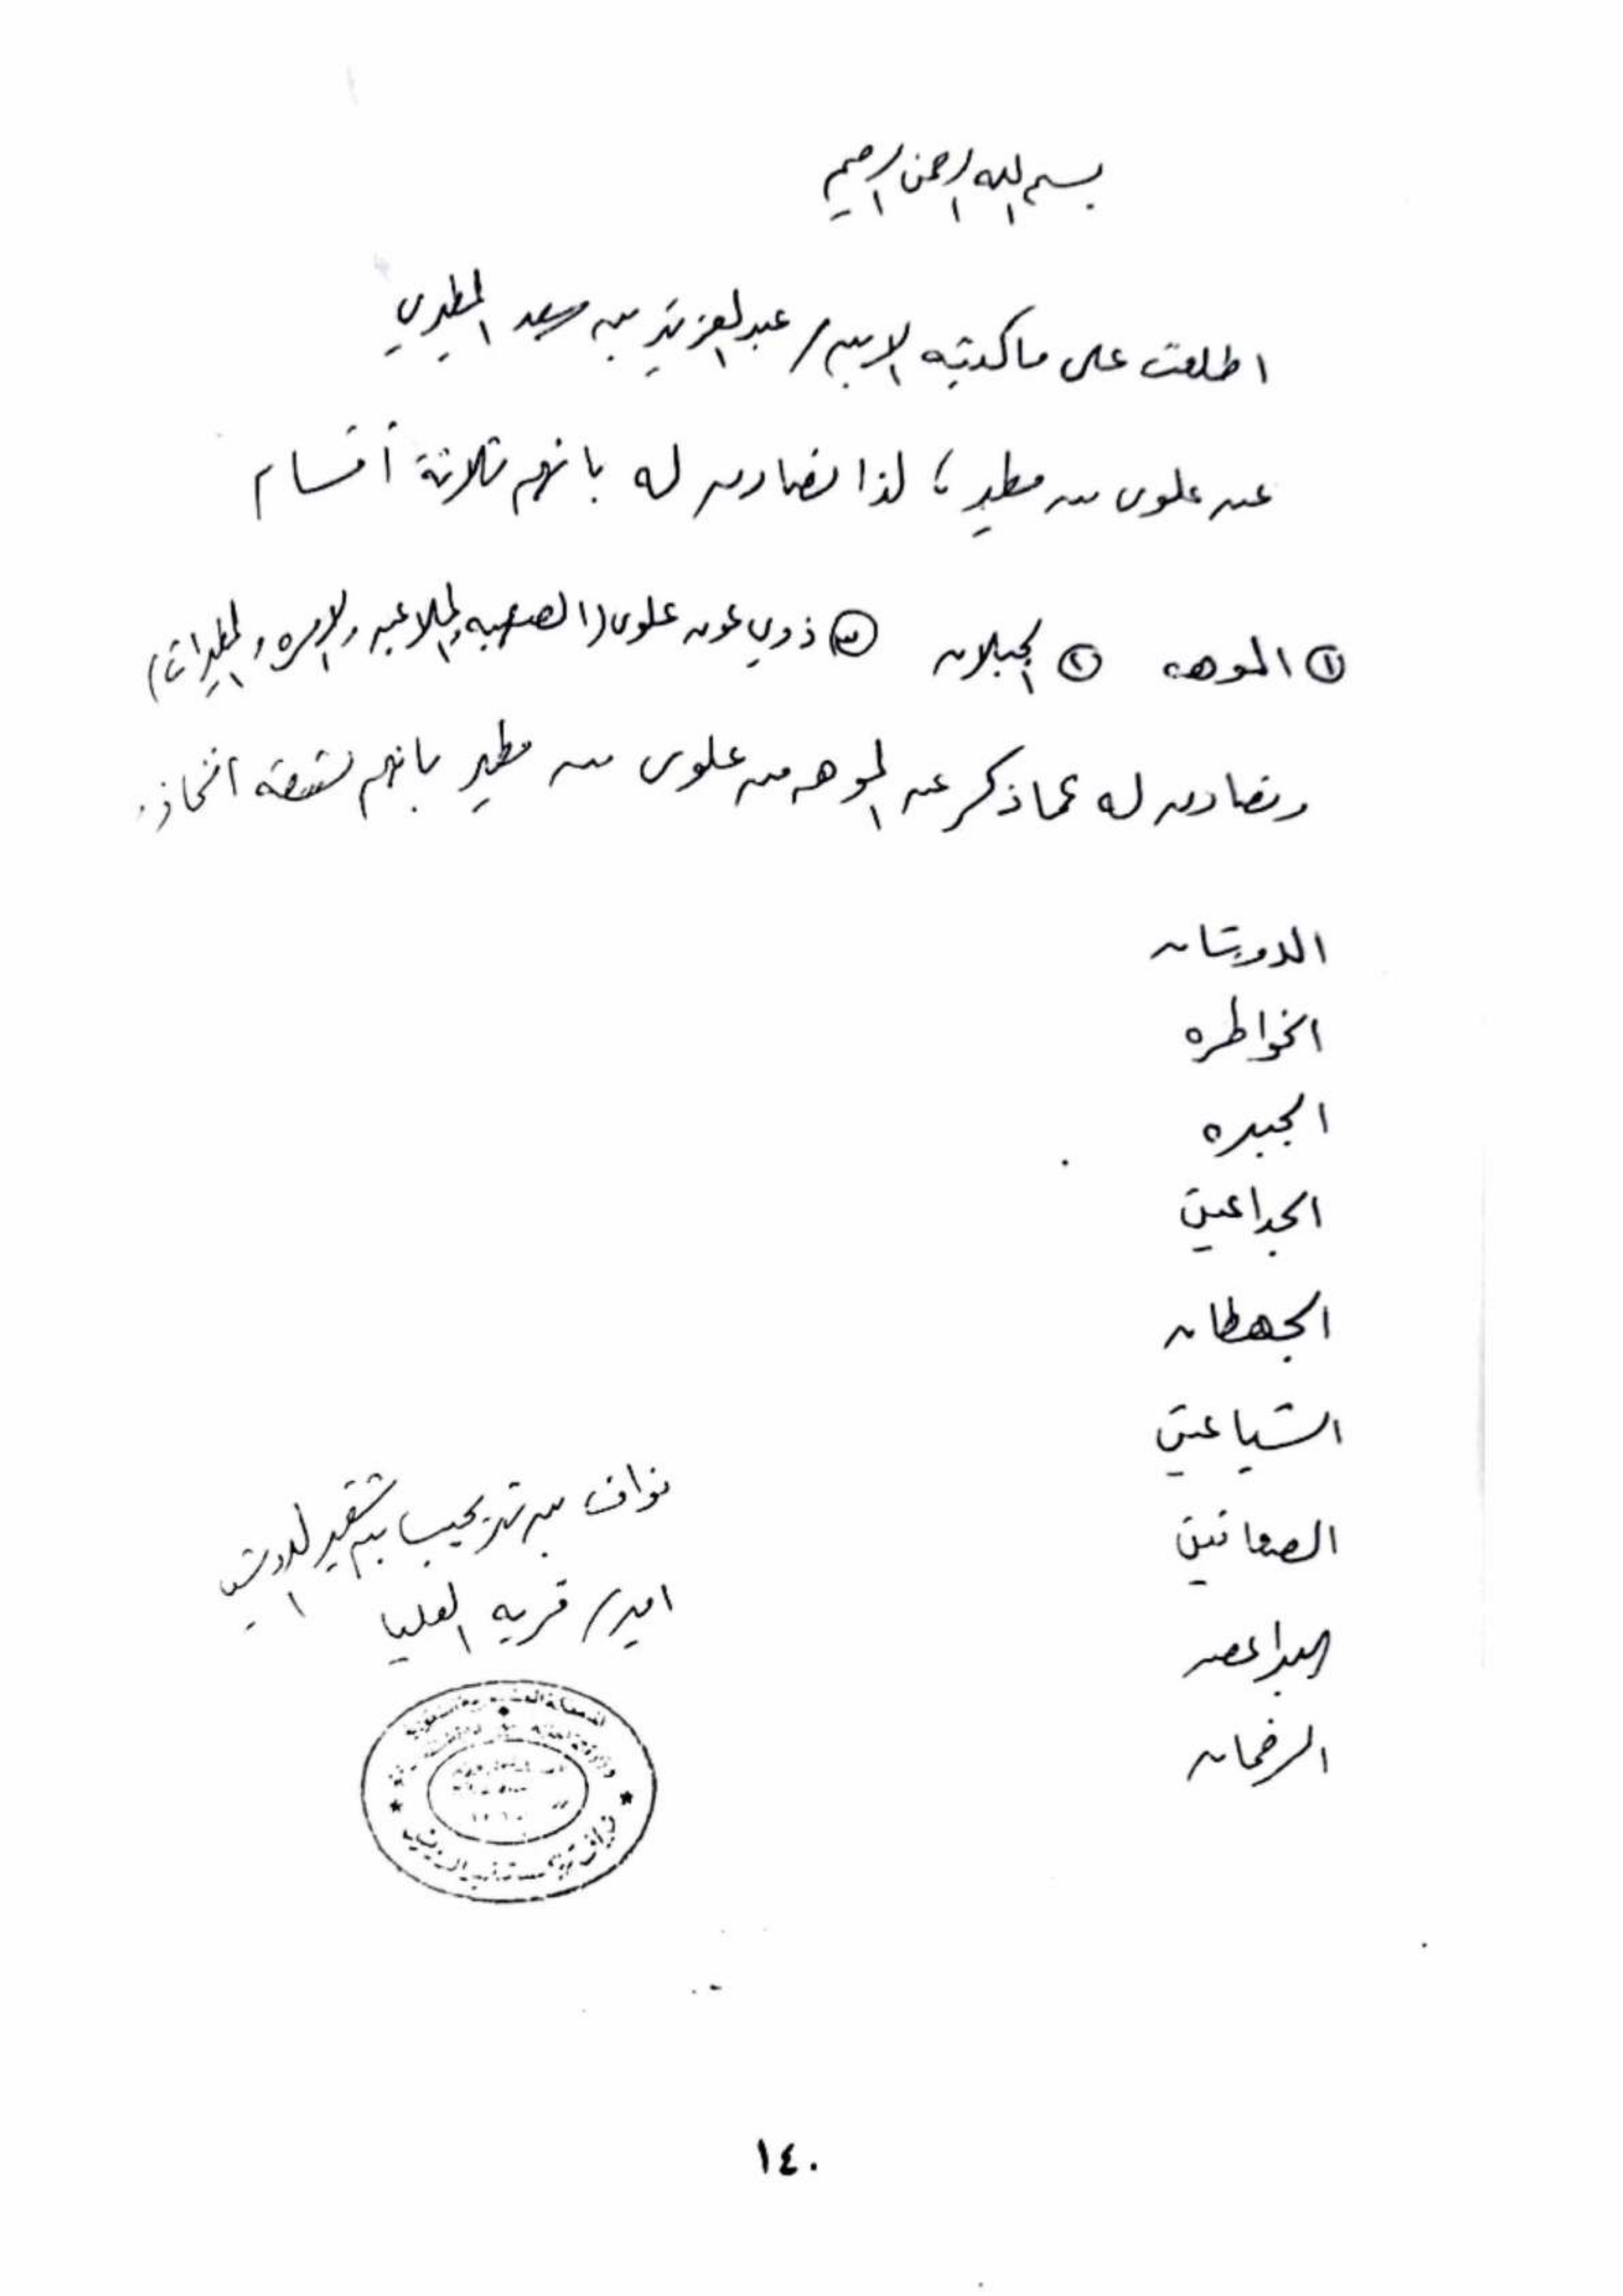 بسم الله الرحمن الرحيم
اطلعت على ما كتبه الابن / عبدالعزيز بن سعد المطيري
عن علوى من مطير ، لذا نصادق له بانهم ثلاثة أقسام
١ الموهه ٢ الجبلان ٣ ذوي عون علوى (الصعبه والملاعبه والامره والمطيرات)
ونصادق له عما ذكر عن الموهه من علوى من مطير بانهم تسعة افخاذ
الدوشان
الخواطره
الجبره
الجداعين
الجهطان
الشياعين
الصعانين
البراعصه
الرخمان
نواف بن تريحيب بن شقير الدويش
امير / قريه العليا
١٤٠